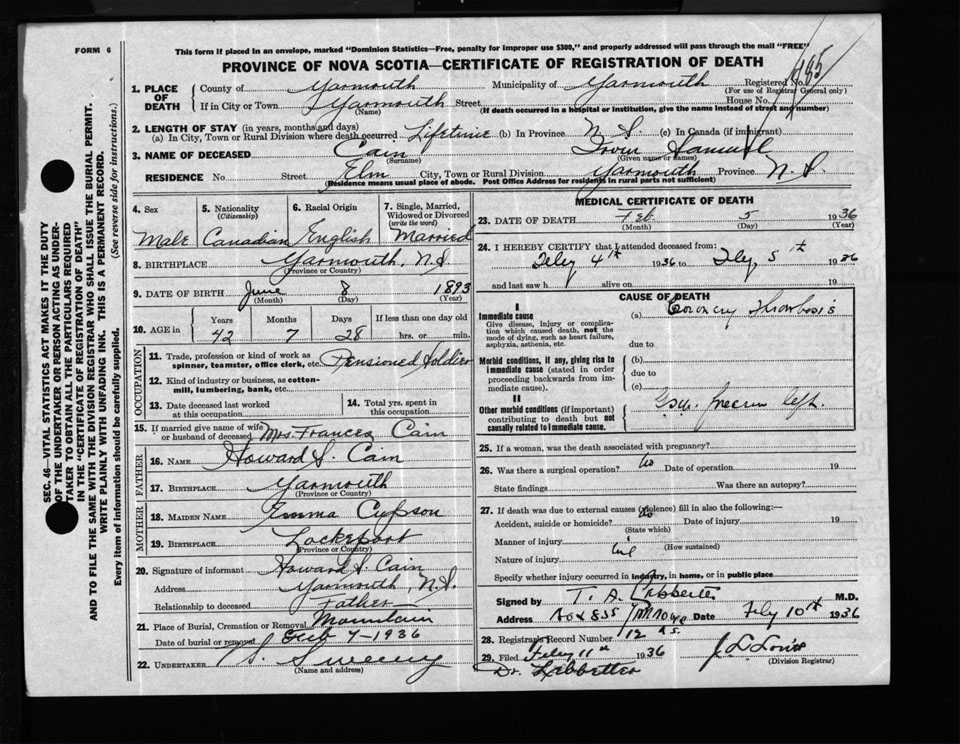 FORM 6
This form if placed in an envelope, marked "Dominion Statistics—Free, penalty for improper use $300," and properly addressed will pass through the mail "FREE"
PROVINCE OF NOVA SCOTIA—CERTIFICATE OF REGISTRATION OF DEATH
SEC. 46—VITAL STATISTICS ACT MAKES IT THE DUTY
OF THE UNDERTAKER OR PERSON ACTING AS UNDER-
TAKER TO OBTAIN ALL THE PARTICULARS REQUIRED
IN THE "CERTIFICATE OF REGISTRATION OF DEATH"
AND TO FILE THE SAME WITH THE DIVISION REGISTRAR WHO SHALL ISSUE THE BURIAL PERMIT.
WRITE PLAINLY WITH UNFADING INK. THIS IS A PERMANENT RECORD.
Every item of information should be carefully supplied. (See reverse side for instructions.)
1. PLACE OF DEATH County of Yarmouth Municipality of Yarmouth Registered No. 185
(For use of Registrar General only)
If in City or Town Yarmouth Street House No.
(Name) (If death occurred in a hospital or institution, give the name instead of street and number)
2. LENGTH OF STAY (in years, months and days)
(a) In City, Town or Rural Division where death occurred Lifetime (b) In Province N S. (c) In Canada (if immigrant)
3. NAME OF DECEASED Cain Irvin Samuel
(Surname) (Given name or names)
RESIDENCE No. Street Elm City, Town or Rural Division Yarmouth Province N. S.
(Residence means usual place of abode. Post Office Address for residents in rural parts not sufficient)
4. Sex 5. Nationality (Citizenship) 6. Racial Origin 7. Single, Married, Widowed or Divorced (write the word)
Male Canadian English Married
8. BIRTHPLACE Yarmouth, N.S.
(Province or Country)
9. DATE OF BIRTH June 8 1893
(Month) (Day) (Year)
10. AGE in Years Months Days If less than one day old
42 7 28 hrs. or min.
OCCUPATION
11. Trade, profession or kind of work as spinner, teamster, office clerk, etc. Pensioned Soldier
12. Kind of industry or business, as cotton-mill, lumbering, bank, etc.
13. Date deceased last worked at this occupation
14. Total yrs. spent in this occupation
15. If married give name of wife or husband of deceased Mrs. Frances Cain
FATHER
16. NAME Howard S. Cain
17. BIRTHPLACE Yarmouth
(Province or Country)
MOTHER
18. MAIDEN NAME Emma
19. BIRTHPLACE Lockeport
(Province or Country)
20. Signature of informant Howard S. Cain
Address Yarmouth, N.S.
Relationship to deceased Father
21. Place of Burial, Cremation or Removal Mountain
Date of burial or removal Feb 7-1936
22. UNDERTAKER Sweeny
(Name and address)
MEDICAL CERTIFICATE OF DEATH
23. DATE OF DEATH Feb 5 1936
(Month) (Day) (Year)
24. I HEREBY CERTIFY that I attended deceased from:
Feby 4th 1936 to Feby 5th 1936
and last saw h alive on 19
CAUSE OF DEATH
I
Immediate cause (a) Coronary Thrombosis
Give disease, injury or complication which caused death, not the mode of dying, such as heart failure, asphyxia, asthenia, etc.
due to
Morbid conditions, if any, giving rise to immediate cause (stated in order proceeding backwards from immediate cause). (b)
due to
(c)
II
Other morbid conditions (if important) contributing to death but not causally related to immediate cause.
25. If a woman, was the death associated with pregnancy?
26. Was there a surgical operation? No Date of operation 19
State findings Was there an autopsy?
27. If death was due to external causes (violence) fill in also the following:—
Accident, suicide or homicide? No Date of injury 19
(State which)
Manner of injury
(How sustained)
Nature of injury
Specify whether injury occurred in industry, in home, or in public place
Signed by T. A. Lebbetter M.D.
Address Box 855 Date Feby 10th 1936
28. Registrar's Record Number 12
29. Filed Feby 11th 1936
(Division Registrar)
Dr. Lebbetter